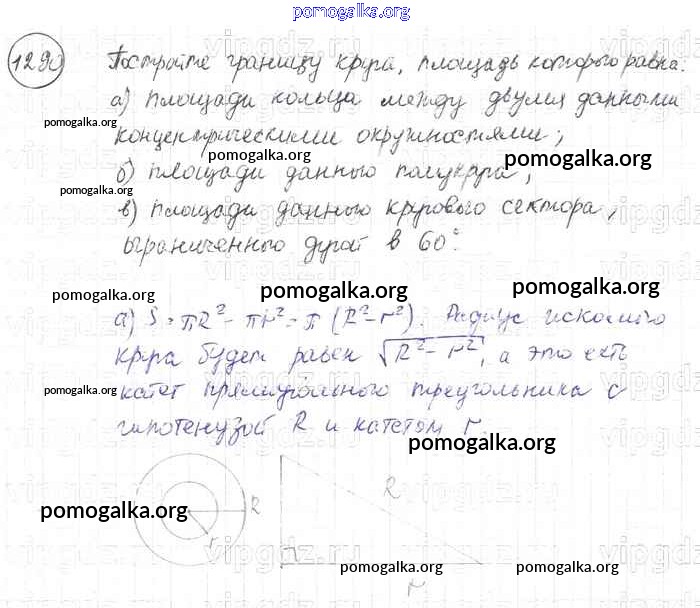 pomogalka.org
1290
Постройте границу круга, площадь которого равна:
а) площади кольца между двумя данными
pomogalka.org
концентрическими окружностями;
pomogalka.org
pomogalka.org
б) площади данного полукруга;
pomogalka.org
в) площади данного кругового сектора,
ограниченного дугой в 60°.
pomogalka.org
pomogalka.org
pomogalka.org
а) S = πR² - πr² = π (R² - r²). Радиус искомого
круга будет равен √R² - r², а это есть
pomogalka.org
катет прямоугольного треугольника с
гипотенузой R и катетом r.
pomogalka.org
R
r
pomogalka.org
R
r
pomogalka.org
pomogalka.org